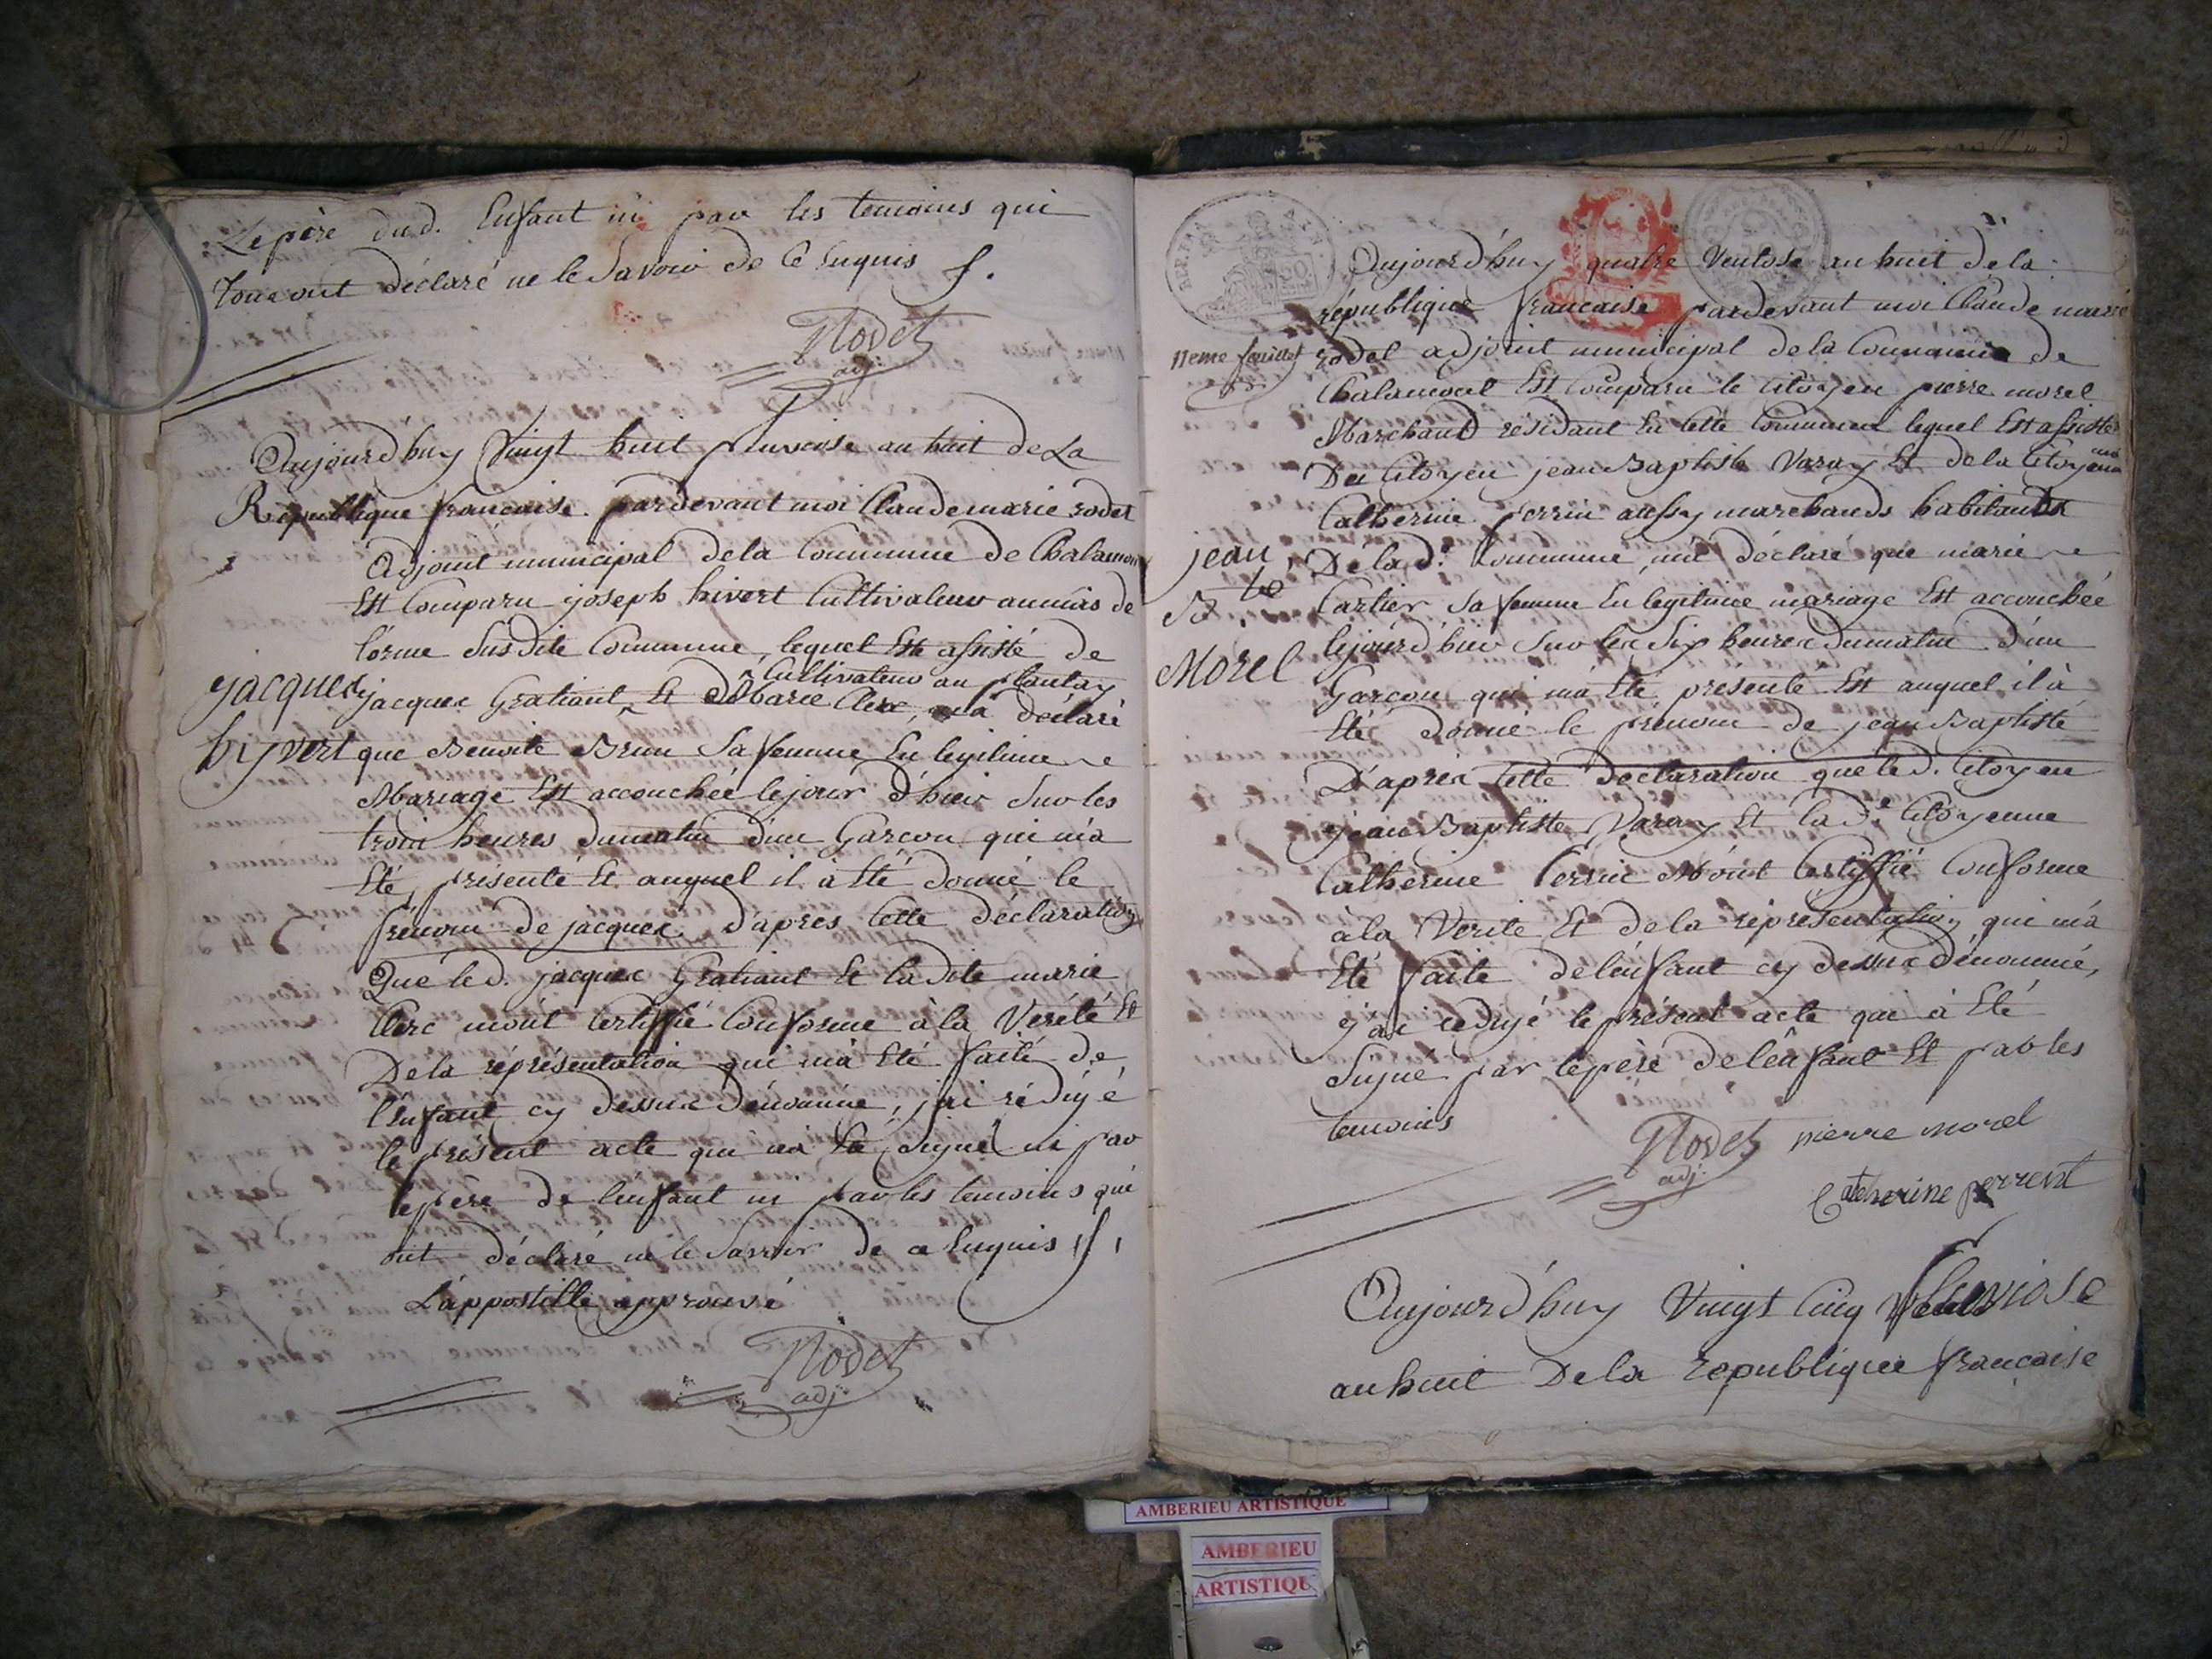 Lepère dud. Enfant ni par les temoins qui
Tous ont déclaré ne le Savoir de Ce Enquis f.
Rodet
adj.
Aujourd'huy Vingt huit pluviose an huit de La
République francaise. pardevant moi Claude marie rodet
Adjoint municipal dela Commune de Chalamon
Est Comparu joseph hivert Cultivateur au mas de
l'orme Susdite Commune, lequel Est assisté de
Cultivateur au plantay
jacques
jacques Gratiant, Et de Marie Clerc, m'a déclaré
hyvert
que Benoite Brun Sa femme En legitime
Mariage Est accouchée lejour d'hier Sur les
trois heures dumatin d'un Garcon qui m'a
Eté, présenté Et auquel il à Eté donné le
prénom de jacques. d'apres Cette déclaration
Que le d. jacques Gratiant Et la dite marie
Clerc m'ont Certiffié Conforme à la Vérété Et
De la réprésentation qui m'a Eté faite de
l'Enfant cy dessus dénommé, j'ai rédigé
le présent acte qui n'a Eté Signé ni par
lepère de lenfant ni par les temoins qui
ont déclaré ne le Savoir de ce Enquis f.
L'appostille approuvé
Rodet
adj.
Aujourd'huy quatre Ventose an huit de la
république francaise pardevant moi Claude marie
11eme feuillet
rodet adjoint municipal de la Commune de
Chalamont Est Comparu le Citoyen pierre morel
Marchand résidant En Cette Commune lequel Est assisté
Du Citoyen jean Baptiste Varay Et de la Citoyenne
Catherine perrin aussy marchands habitants
jean
De la d.e Commune, m'a déclaré que marie
B.te
Cartier Sa femme En legitime mariage Est accouchée
Morel
lejourd'hier Sur les Six heures dumatin d'un
Garcon qui m'a Eté présenté Est auquel il à
Eté donné le prénom de jean Baptiste
D'après Cette déclaration que le d. Citoyen
jean Baptiste Varay Et la d.e Citoyenne
Catherine Perrin M'ont Certiffié Conforme
à la Verité Et de la répresentation qui m'a
Eté faite de lénfant cy dessus dénommé,
j'ai redigé le présent acte qui à Eté
Signé par lepère de lénfant Et par les
temoins
Rodet
adj.
pierre morel
Catherine perrent
Aujourd'huy Vingt Cinq pluviose
an huit De la republique francaise
AMBERIEU ARTISTIQUE
AMBERIEU
ARTISTIQU